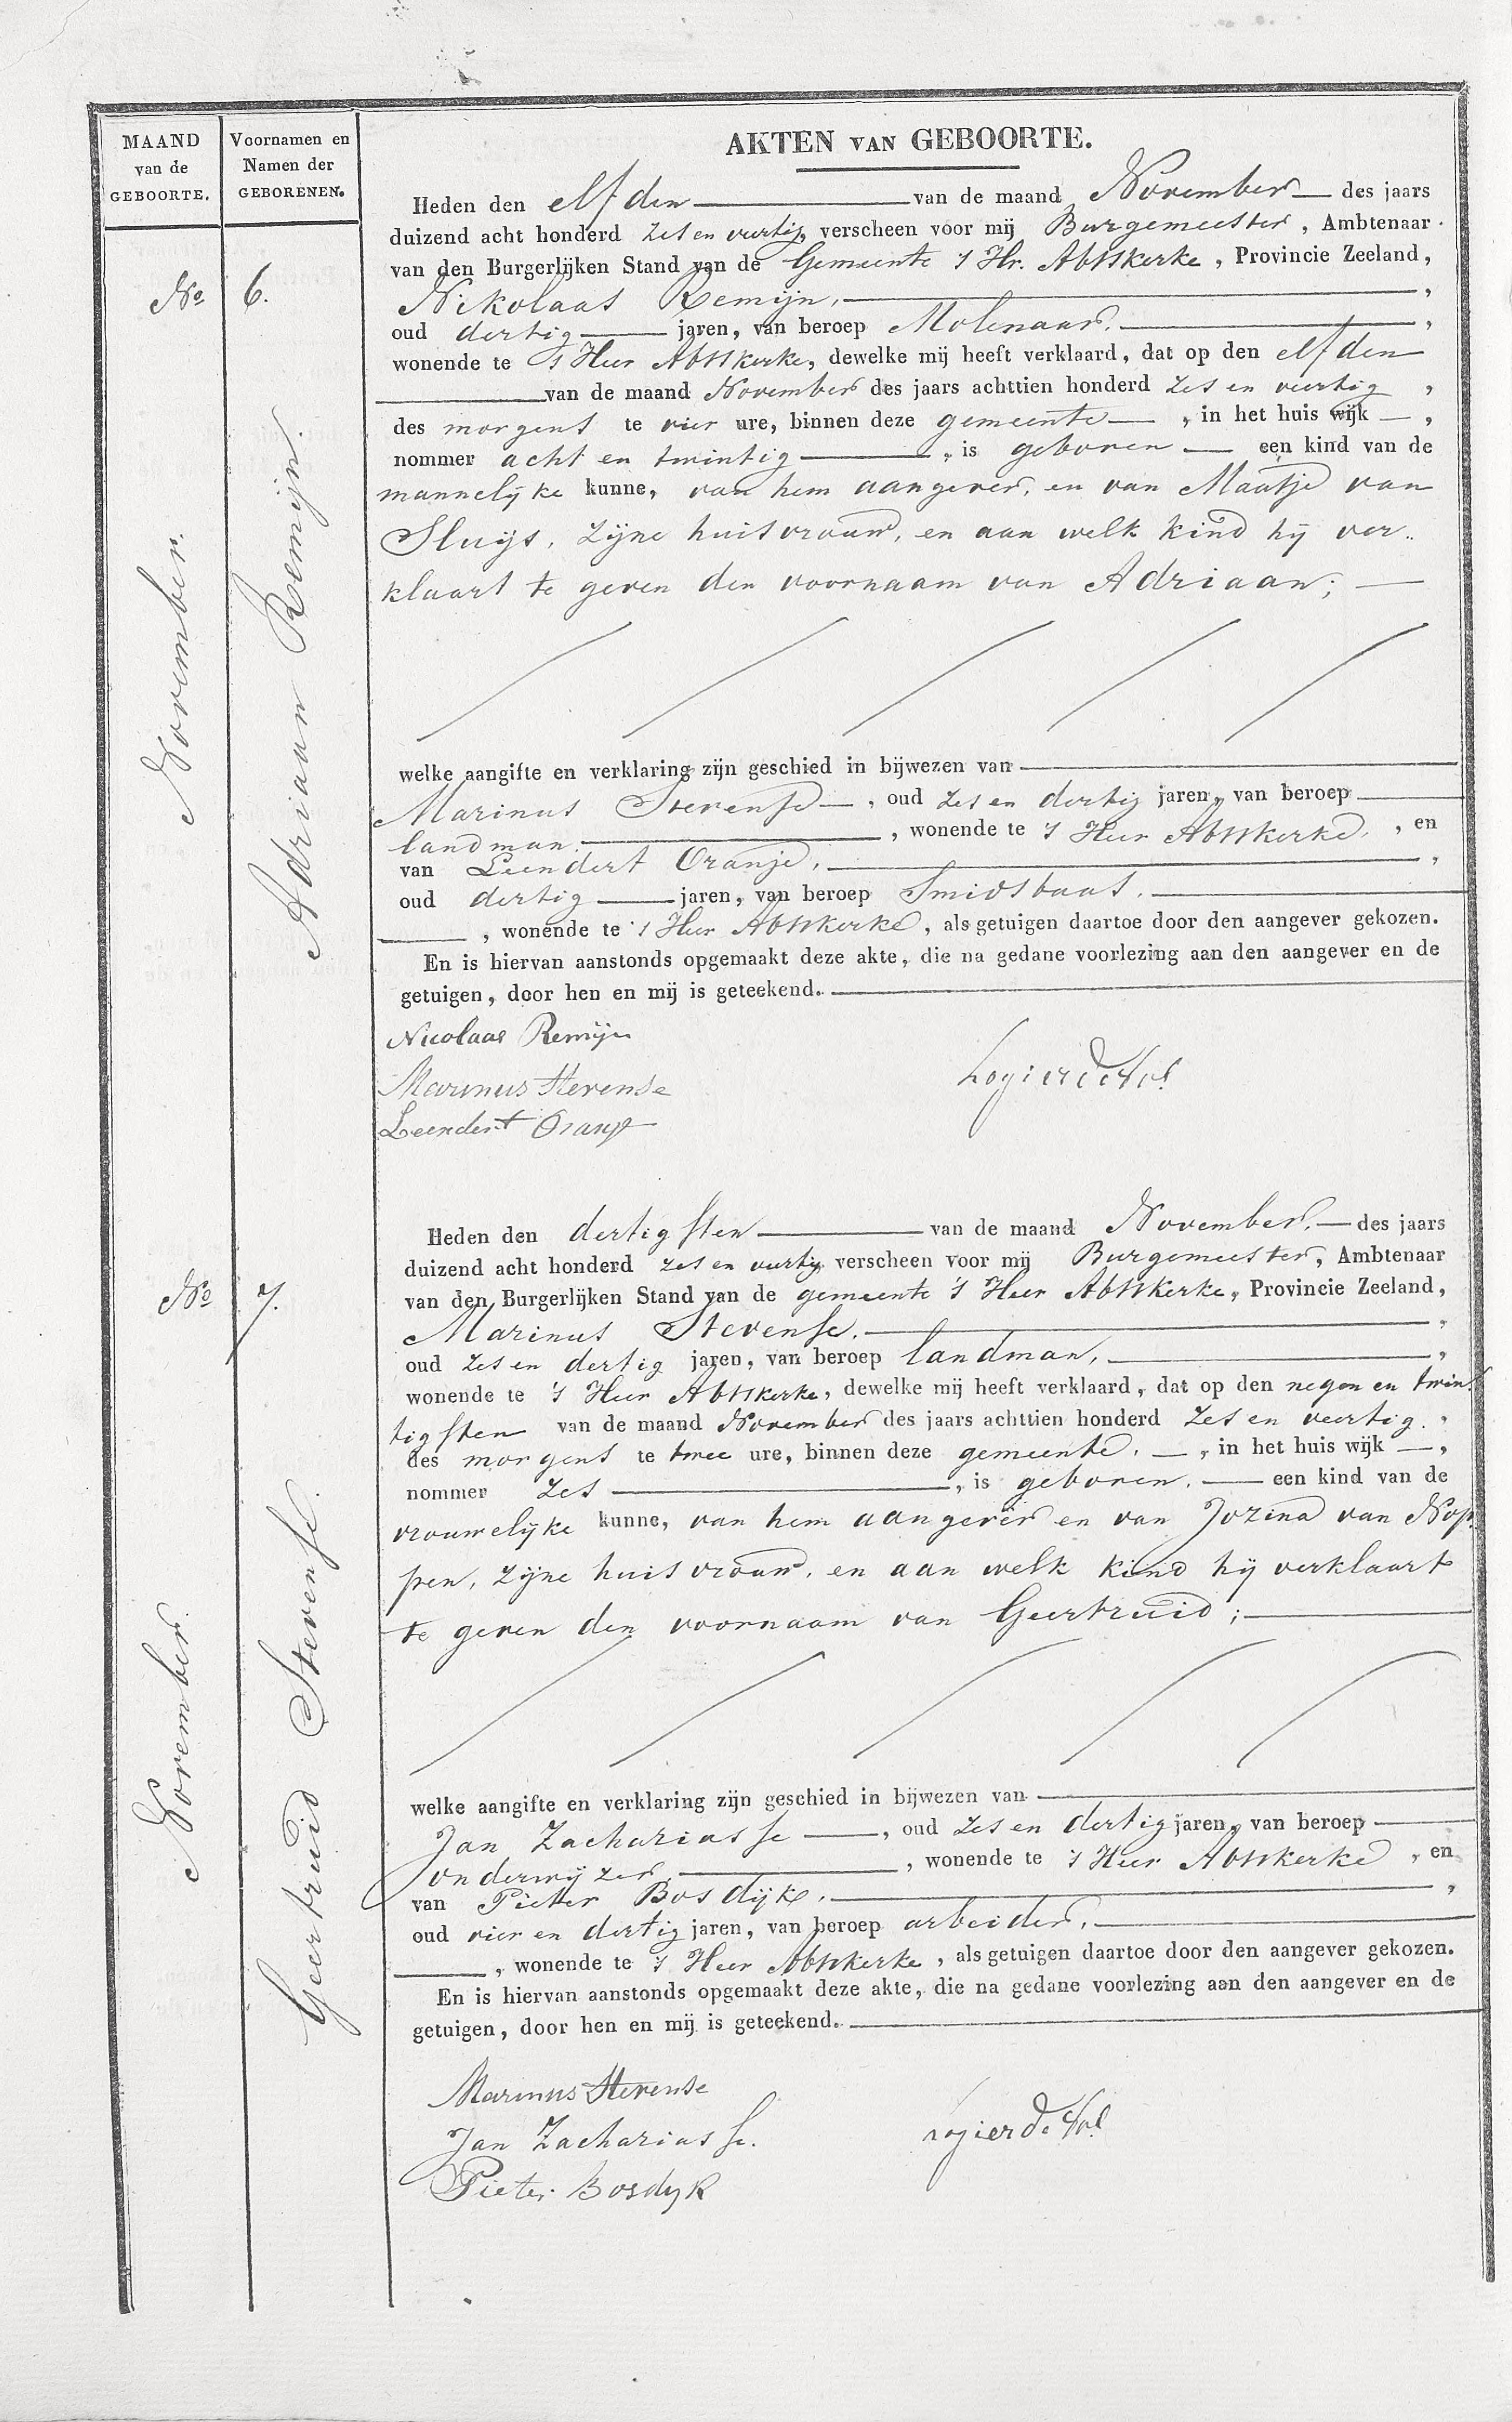 MAAND
van de
GEBOORTE.
Voornamen en
Namen der
GEBORENEN.
AKTEN VAN GEBOORTE.
No. 6.
November.
Adriaan Remijn.
Heden den elfden van de maand November des jaars
duizend acht honderd zes en veertig, verscheen voor mij Burgemeester, Ambtenaar
van den Burgerlijken Stand van de Gemeente 's Hr. Abtskerke, Provincie Zeeland,
Nikolaas Remijn,
oud dertig jaren, van beroep Molenaar,
wonende te 's Heer Abtskerke, dewelke mij heeft verklaard, dat op den elfden
van de maand November des jaars achttien honderd zes en veertig,
des morgens te vier ure, binnen deze gemeente, in het huis wijk —,
nommer acht en twintig, is geboren een kind van de
mannelijke kunne, van hem aangever, en van Maatje van
Sluijs, zijne huisvrouw, en aan welk kind hij ver..
klaart te geven den voornaam van Adriaan;
welke aangifte en verklaring zijn geschied in bijwezen van
Marinus Stevense, oud zes en dertig jaren, van beroep
landman, wonende te 's Heer Abtskerke, en
van Leendert Oranje,
oud dertig jaren, van beroep Smidsbaas,
, wonende te 's Heer Abtskerke, als getuigen daartoe door den aangever gekozen.
En is hiervan aanstonds opgemaakt deze akte, die na gedane voorlezing aan den aangever en de
getuigen, door hen en mij is geteekend.
Nicolaas Remijn
Marinus Stevense
Leendert Oranje
No. 7.
November.
Geertruid Stevense.
Heden den dertigsten van de maand November, des jaars
duizend acht honderd zes en veertig verscheen voor mij Burgemeester, Ambtenaar
van den Burgerlijken Stand van de gemeente 's Heer Abtskerke, Provincie Zeeland,
Marinus Stevense,
oud zes en dertig jaren, van beroep landman,
wonende te 's Heer Abtskerke, dewelke mij heeft verklaard, dat op den negen en twin
tigsten van de maand November des jaars achttien honderd zes en veertig,
des morgens te twee ure, binnen deze gemeente, in het huis wijk —,
nommer zes, is geboren, een kind van de
vrouwelijke kunne, van hem aangever en van Jozina van Nop
pen, zijne huisvrouw, en aan welk kind hij verklaart
te geven den voornaam van Geertruid;
welke aangifte en verklaring zijn geschied in bijwezen van
Jan Zachariasse, oud zes en dertig jaren, van beroep
onderwijzer, wonende te 's Heer Abtskerke, en
van Pieter Bosdijk,
oud vier en dertig jaren, van beroep arbeider,
, wonende te 's Heer Abtskerke, als getuigen daartoe door den aangever gekozen.
En is hiervan aanstonds opgemaakt deze akte, die na gedane voorlezing aan den aangever en de
getuigen, door hen en mij is geteekend.
Marinus Stevense
Jan Zachariasse.
Pieter Bosdyk